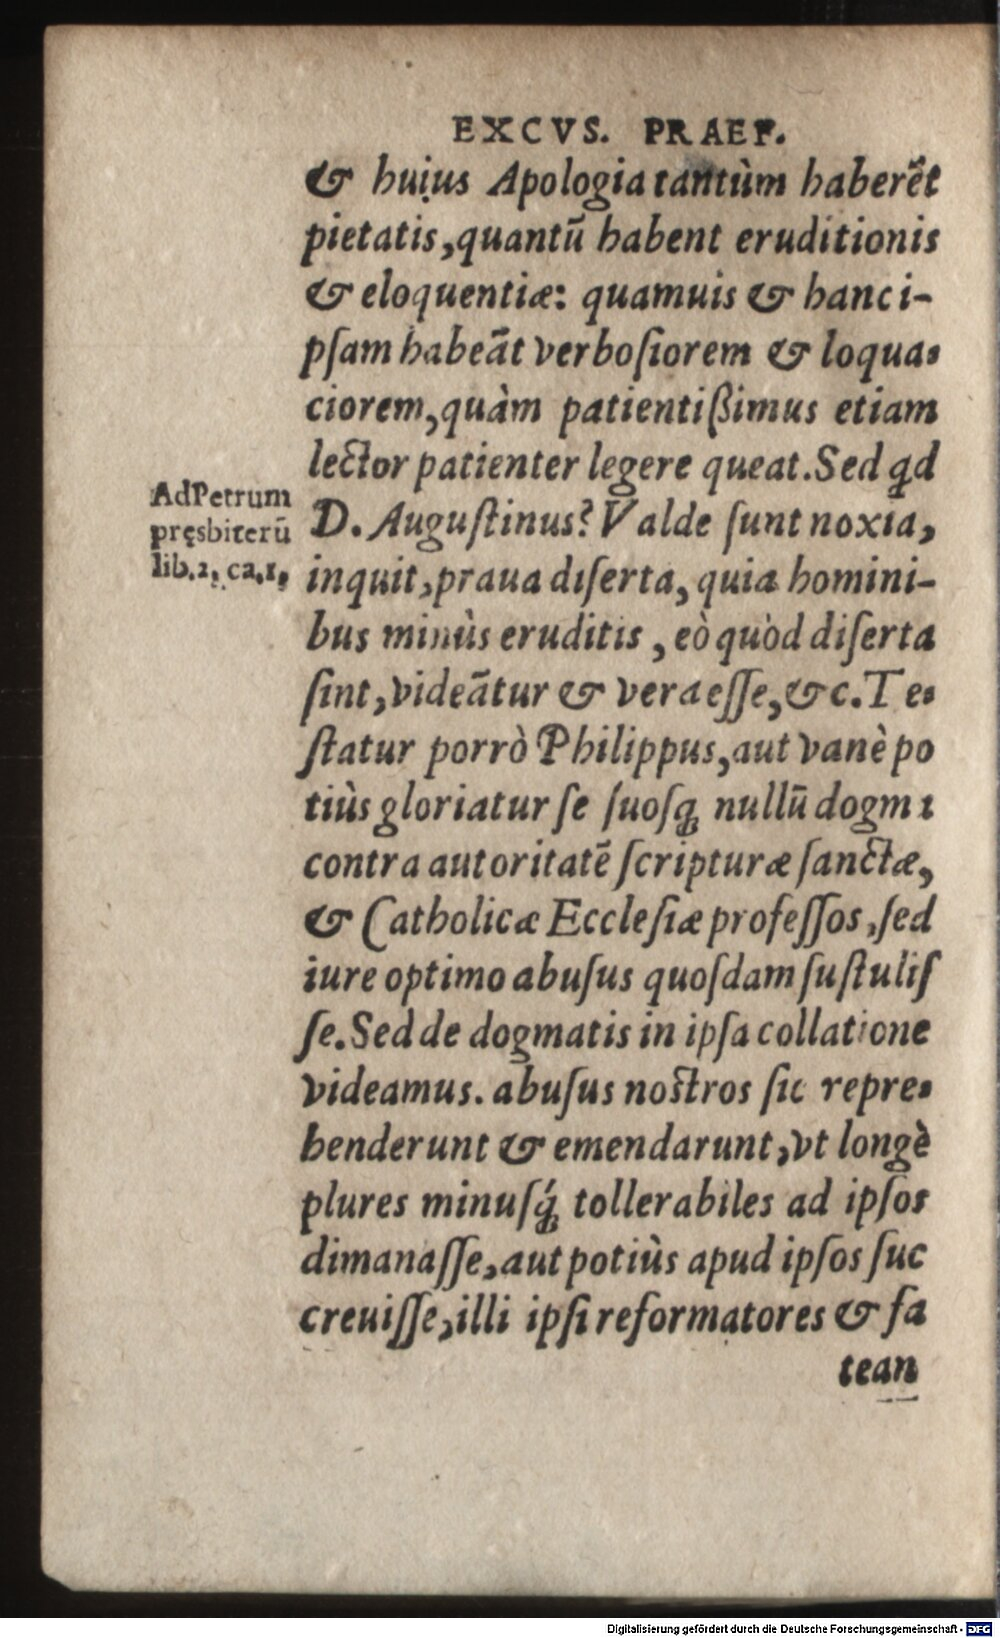 EXCVS. PRAEF.
& huius Apologia tantùm haberẽt
pietatis, quantũ habent eruditionis
& eloquentiæ: quamuis & hanc i-
pſam habeãt verboſiorem & loqua-
ciorem, quàm patientißimus etiam
lector patienter legere queat. Sed qd
AdPetrum
pręsbiterũ
lib. 2. ca. 1.
D. Auguſtinus? Valde ſunt noxia,
inquit, praua diſerta, quia homini-
bus minùs eruditis, eò quòd diſerta
ſint, videãtur & vera eſſe, &c. Te-
ſtatur porrò Philippus, aut vanè po
tiùs gloriatur ſe ſuoſq; nullũ dogma
contra autoritatẽ ſcripturæ ſanctæ,
& Catholicæ Eccleſiæ profeſſos, ſed
iure optimo abuſus quoſdam ſuſtuliſ
ſe. Sed de dogmatis in ipſa collatione
videamus. abuſus noſtros ſic repre-
henderunt & emendarunt, vt longè
plures minuſq́; tollerabiles ad ipſos
dimanaſſe, aut potiùs apud ipſos ſuc
creuiſſe, illi ipſi reformatores & fa
tean
Digitalisierung gefördert durch die Deutsche Forschungsgemeinschaft - DFG